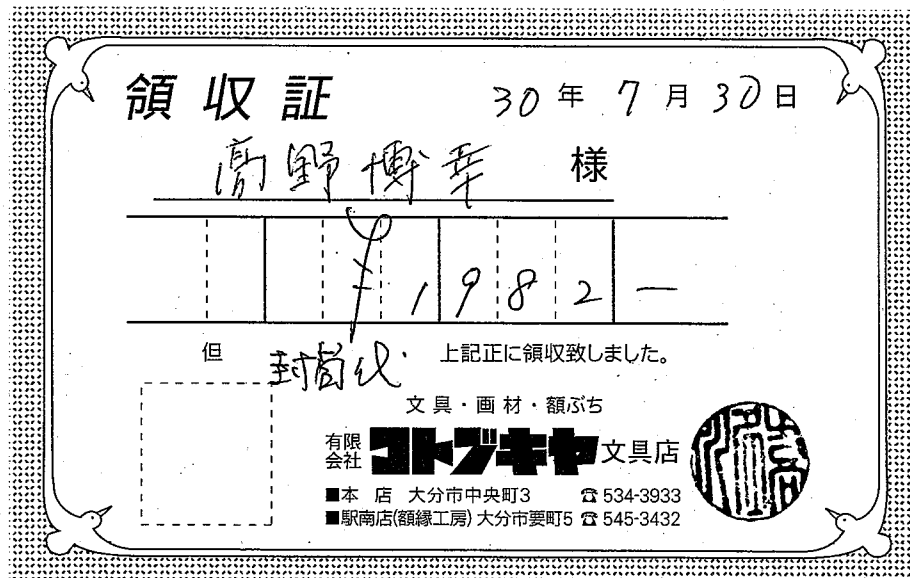 領収証 30年 7月 30日
髙野博幸 様
¥1982―
但 封筒代 上記正に領収致しました。
文具・画材・額ぶち
有限会社 コトブキヤ 文具店
■本 店 大分市中央町3 ☎534-3933
■駅南店(額縁工房) 大分市要町5 ☎545-3432